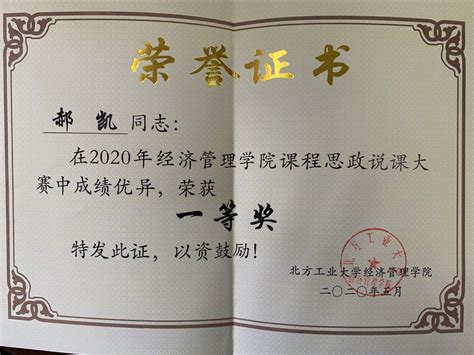 荣誉证书
郝凯 同志：
在2020年经济管理学院课程思政说课大
赛中成绩优异，荣获
一等奖
特发此证，以资鼓励！
北方工业大学经济管理学院
二〇二〇年五月
北方工业大